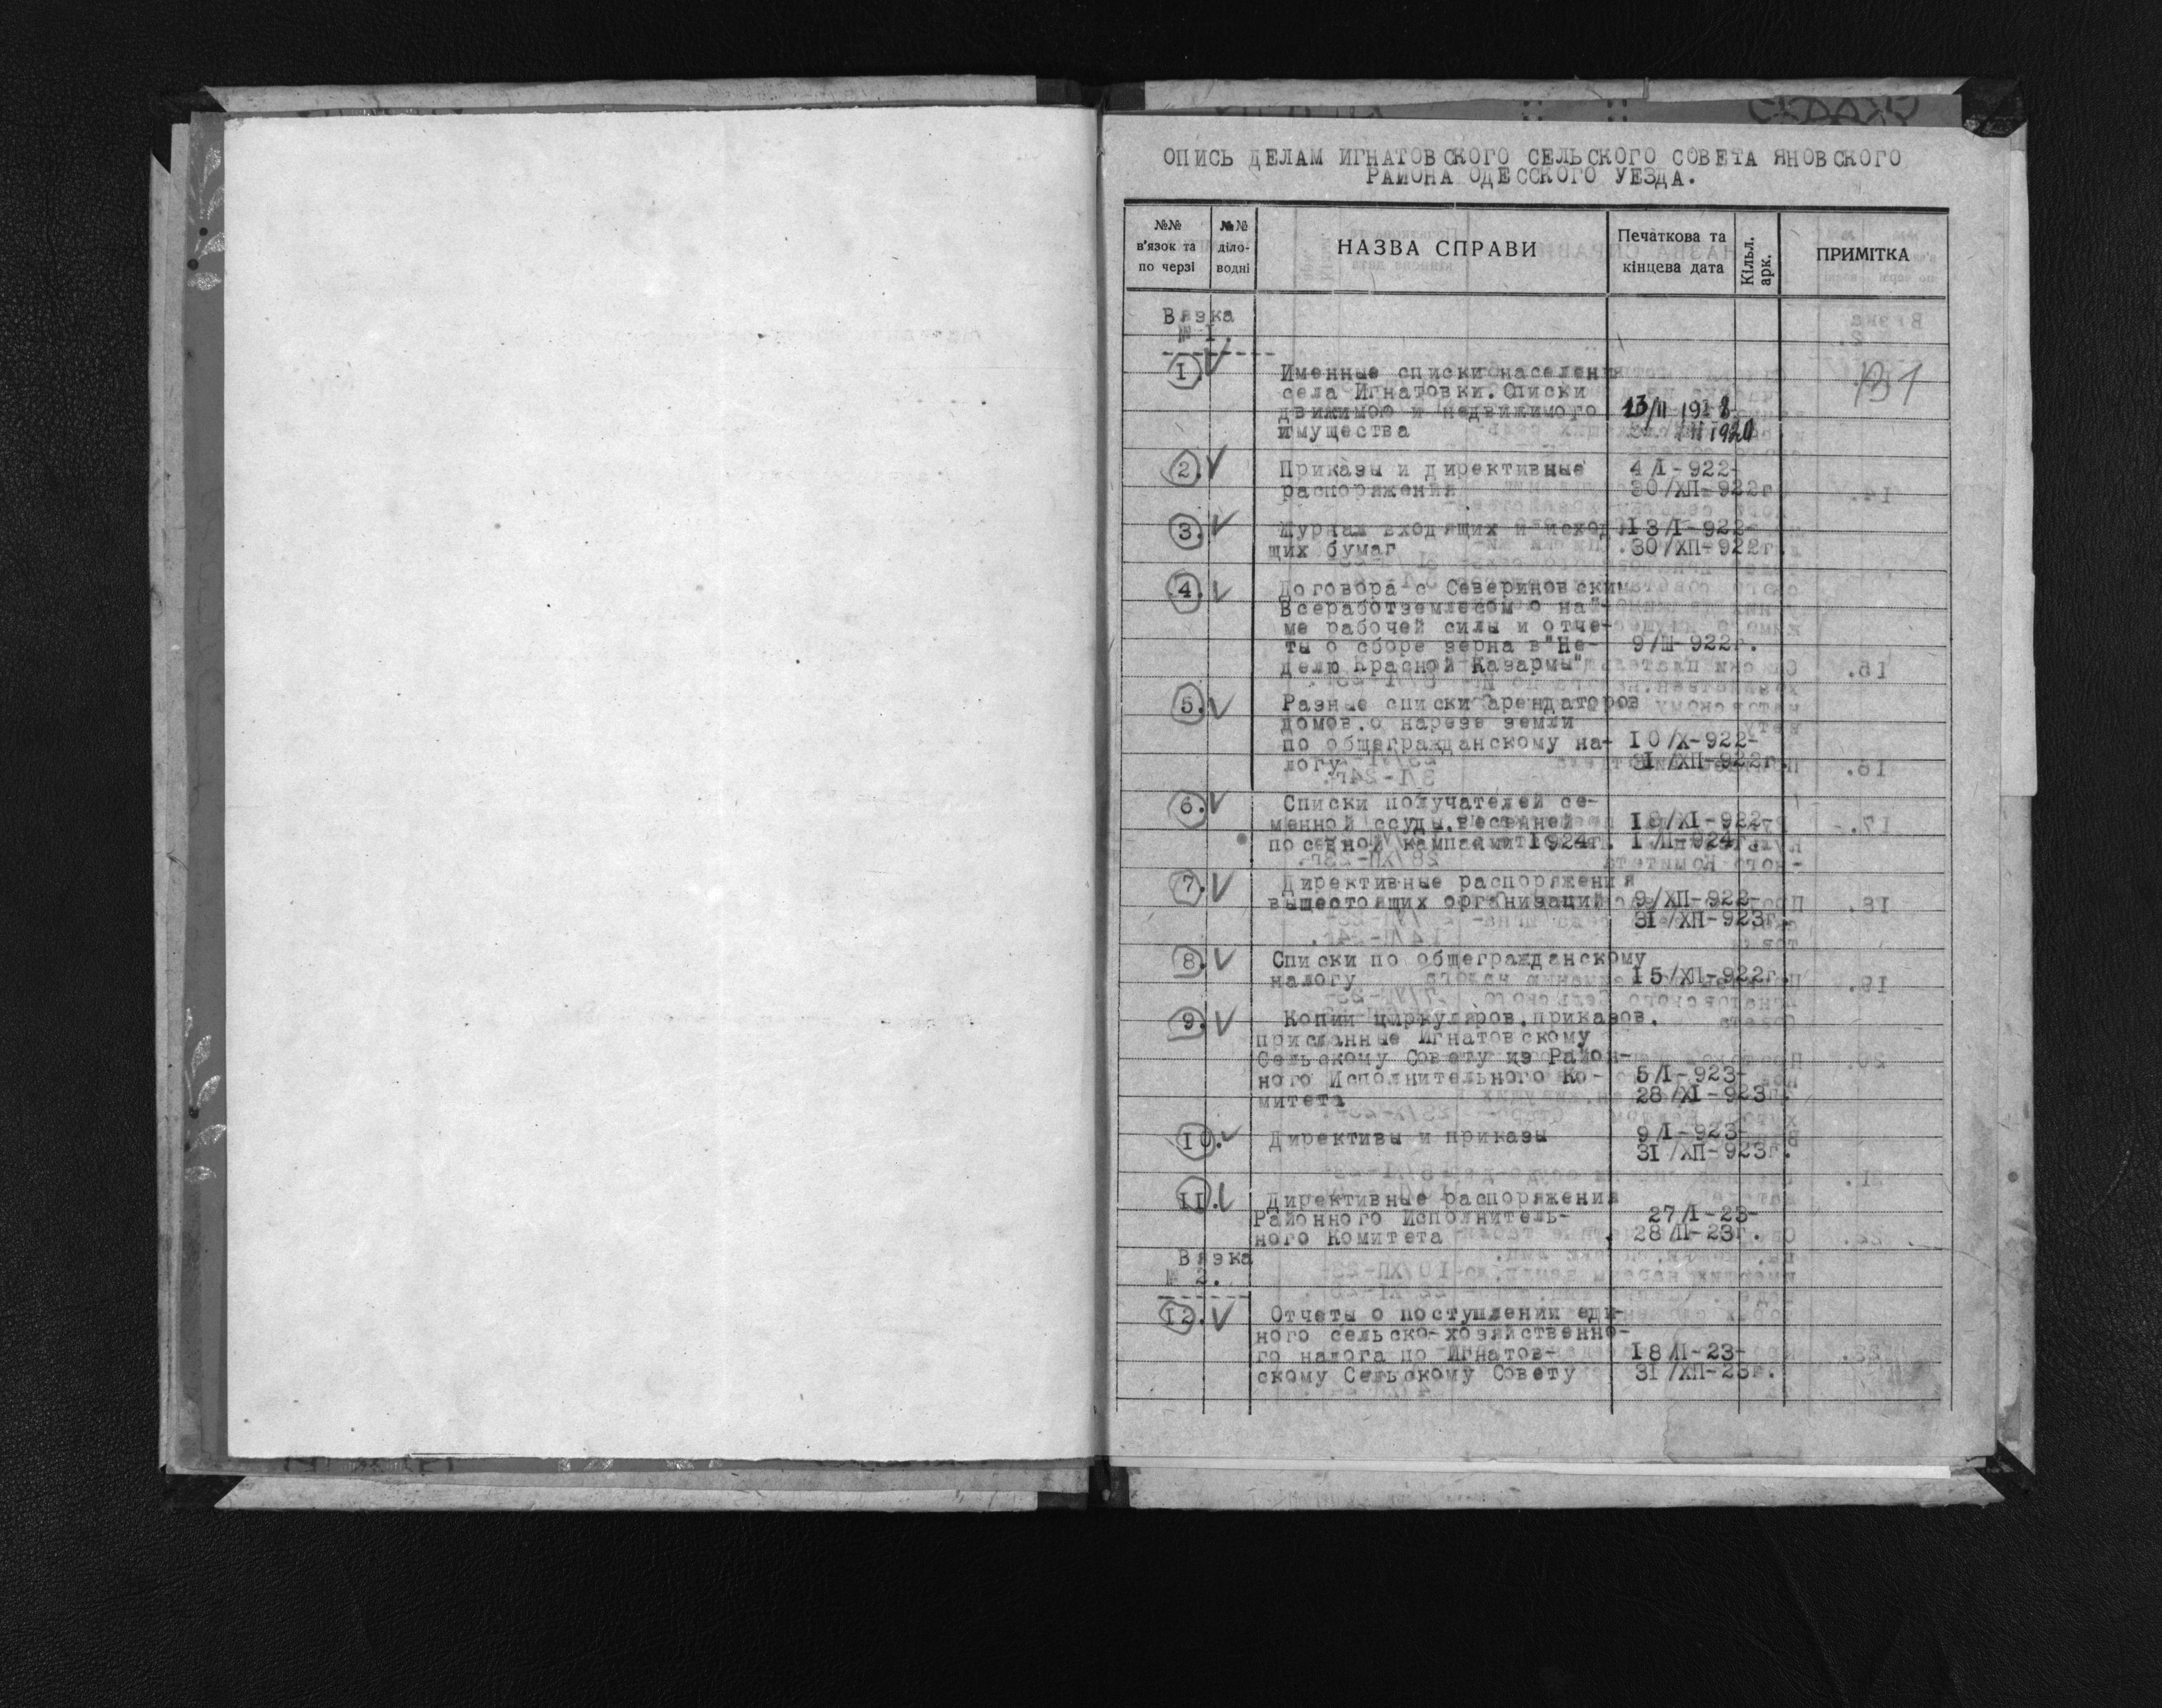 ОПИСЬ ДЕЛАМ ИГНАТОВСКОГО СЕЛЬСКОГО СОВЕТА ЯНОВСКОГО
РАЙОНА ОДЕССКОГО УЕЗДА.
№№ в'язок та по черзі
№№ діло-водні
НАЗВА СПРАВИ
Печаткова та кінцева дата
Кільк. арк.
ПРИМІТКА
Вязка
№ I.
I. Именные списки населения
села Игнатовки. Списки
движимою и недвижимого 13/II 1918-
имущества 1920
131
2. Приказы и директивные 4/I-922-
распоряжения 30/ХП-922г
3. Журнал входящих и исходя 13/I-922-
щих бумаг 30/ХП-922г.
4. Договора с Севериновским
Всеработземлесом о най-
ме рабочей силы и отче-
ты о сборе зерна в "Не- 9/Ш-922г.
делю Красной Казармы"
5. Разные списки арендаторов
домов, о нарезе земли
по общегражданскому на- I0/X-922-
логу 3I/ХП-922г.
6. Списки получателей се-
менной ссуды, весенней I8/XI-922-
посевной кампании 1924г. I/II-924г.
7. Директивные распоряжения
вышестоящих организаций 9/ХП-922-
3I/ХП-923г.
8. Списки по общегражданскому
налогу I5/ХП-922г.
9. Копии циркуляров, приказов,
присланные Игнатовскому
Сельскому Совету из Район-
ного Исполнительного Ко- 5/I-923-
митета 28/XI-923г.
I0. Директивы и приказы 9/I-923-
3I/ХП-923г.
II. Директивные распоряжения
Районного Исполнитель- 27/I-23-
ного Комитета 28/II-23г.
Вязка
№ 2.
I2. Отчеты о поступлении еди-
ного сельско-хозяйственно-
го налога по Игнатов- I8/I-23-
скому Сельскому Совету 3I/ХП-23г.